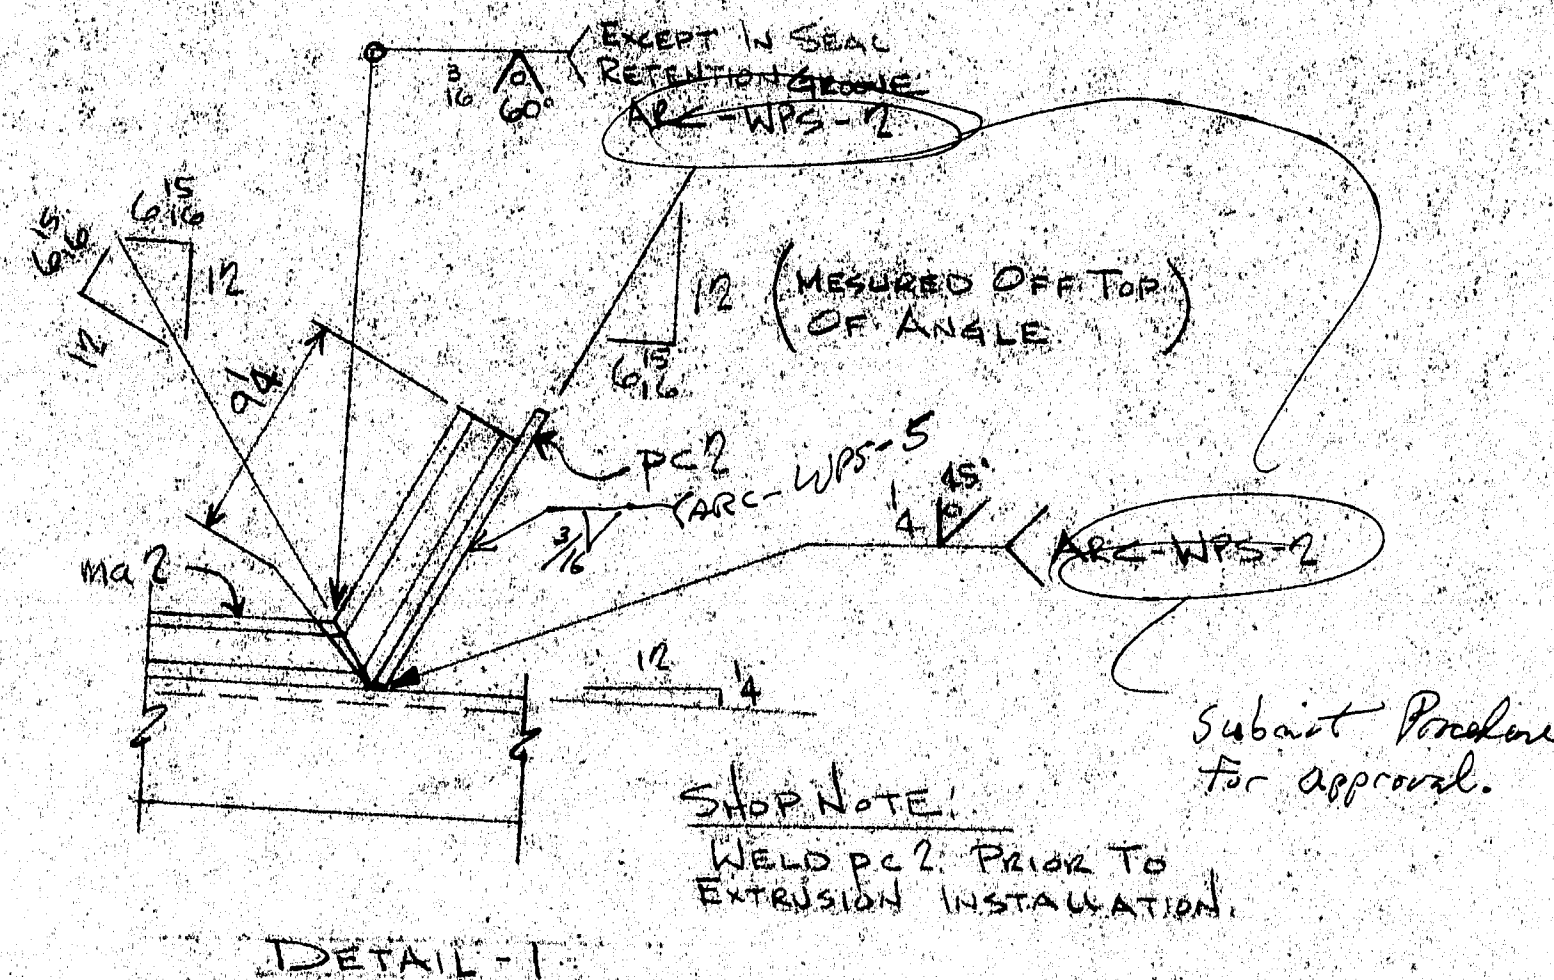 EXCEPT IN SEAL
RETENTION GROOVE
ARC-WPS-2
3/16
0
60°
6 15/16
12
6 15/16
12
9 1/4
12
6 15/16
(MESURED OFF TOP
OF ANGLE)
pc 2
ARC-WPS-5
3/16
1/4
45°
0
ARC-WPS-2
ma 2
12
1/4
Submit Procedure
for approval.
SHOP NOTE:
WELD pc 2 PRIOR TO
EXTRUSION INSTALLATION.
DETAIL-1